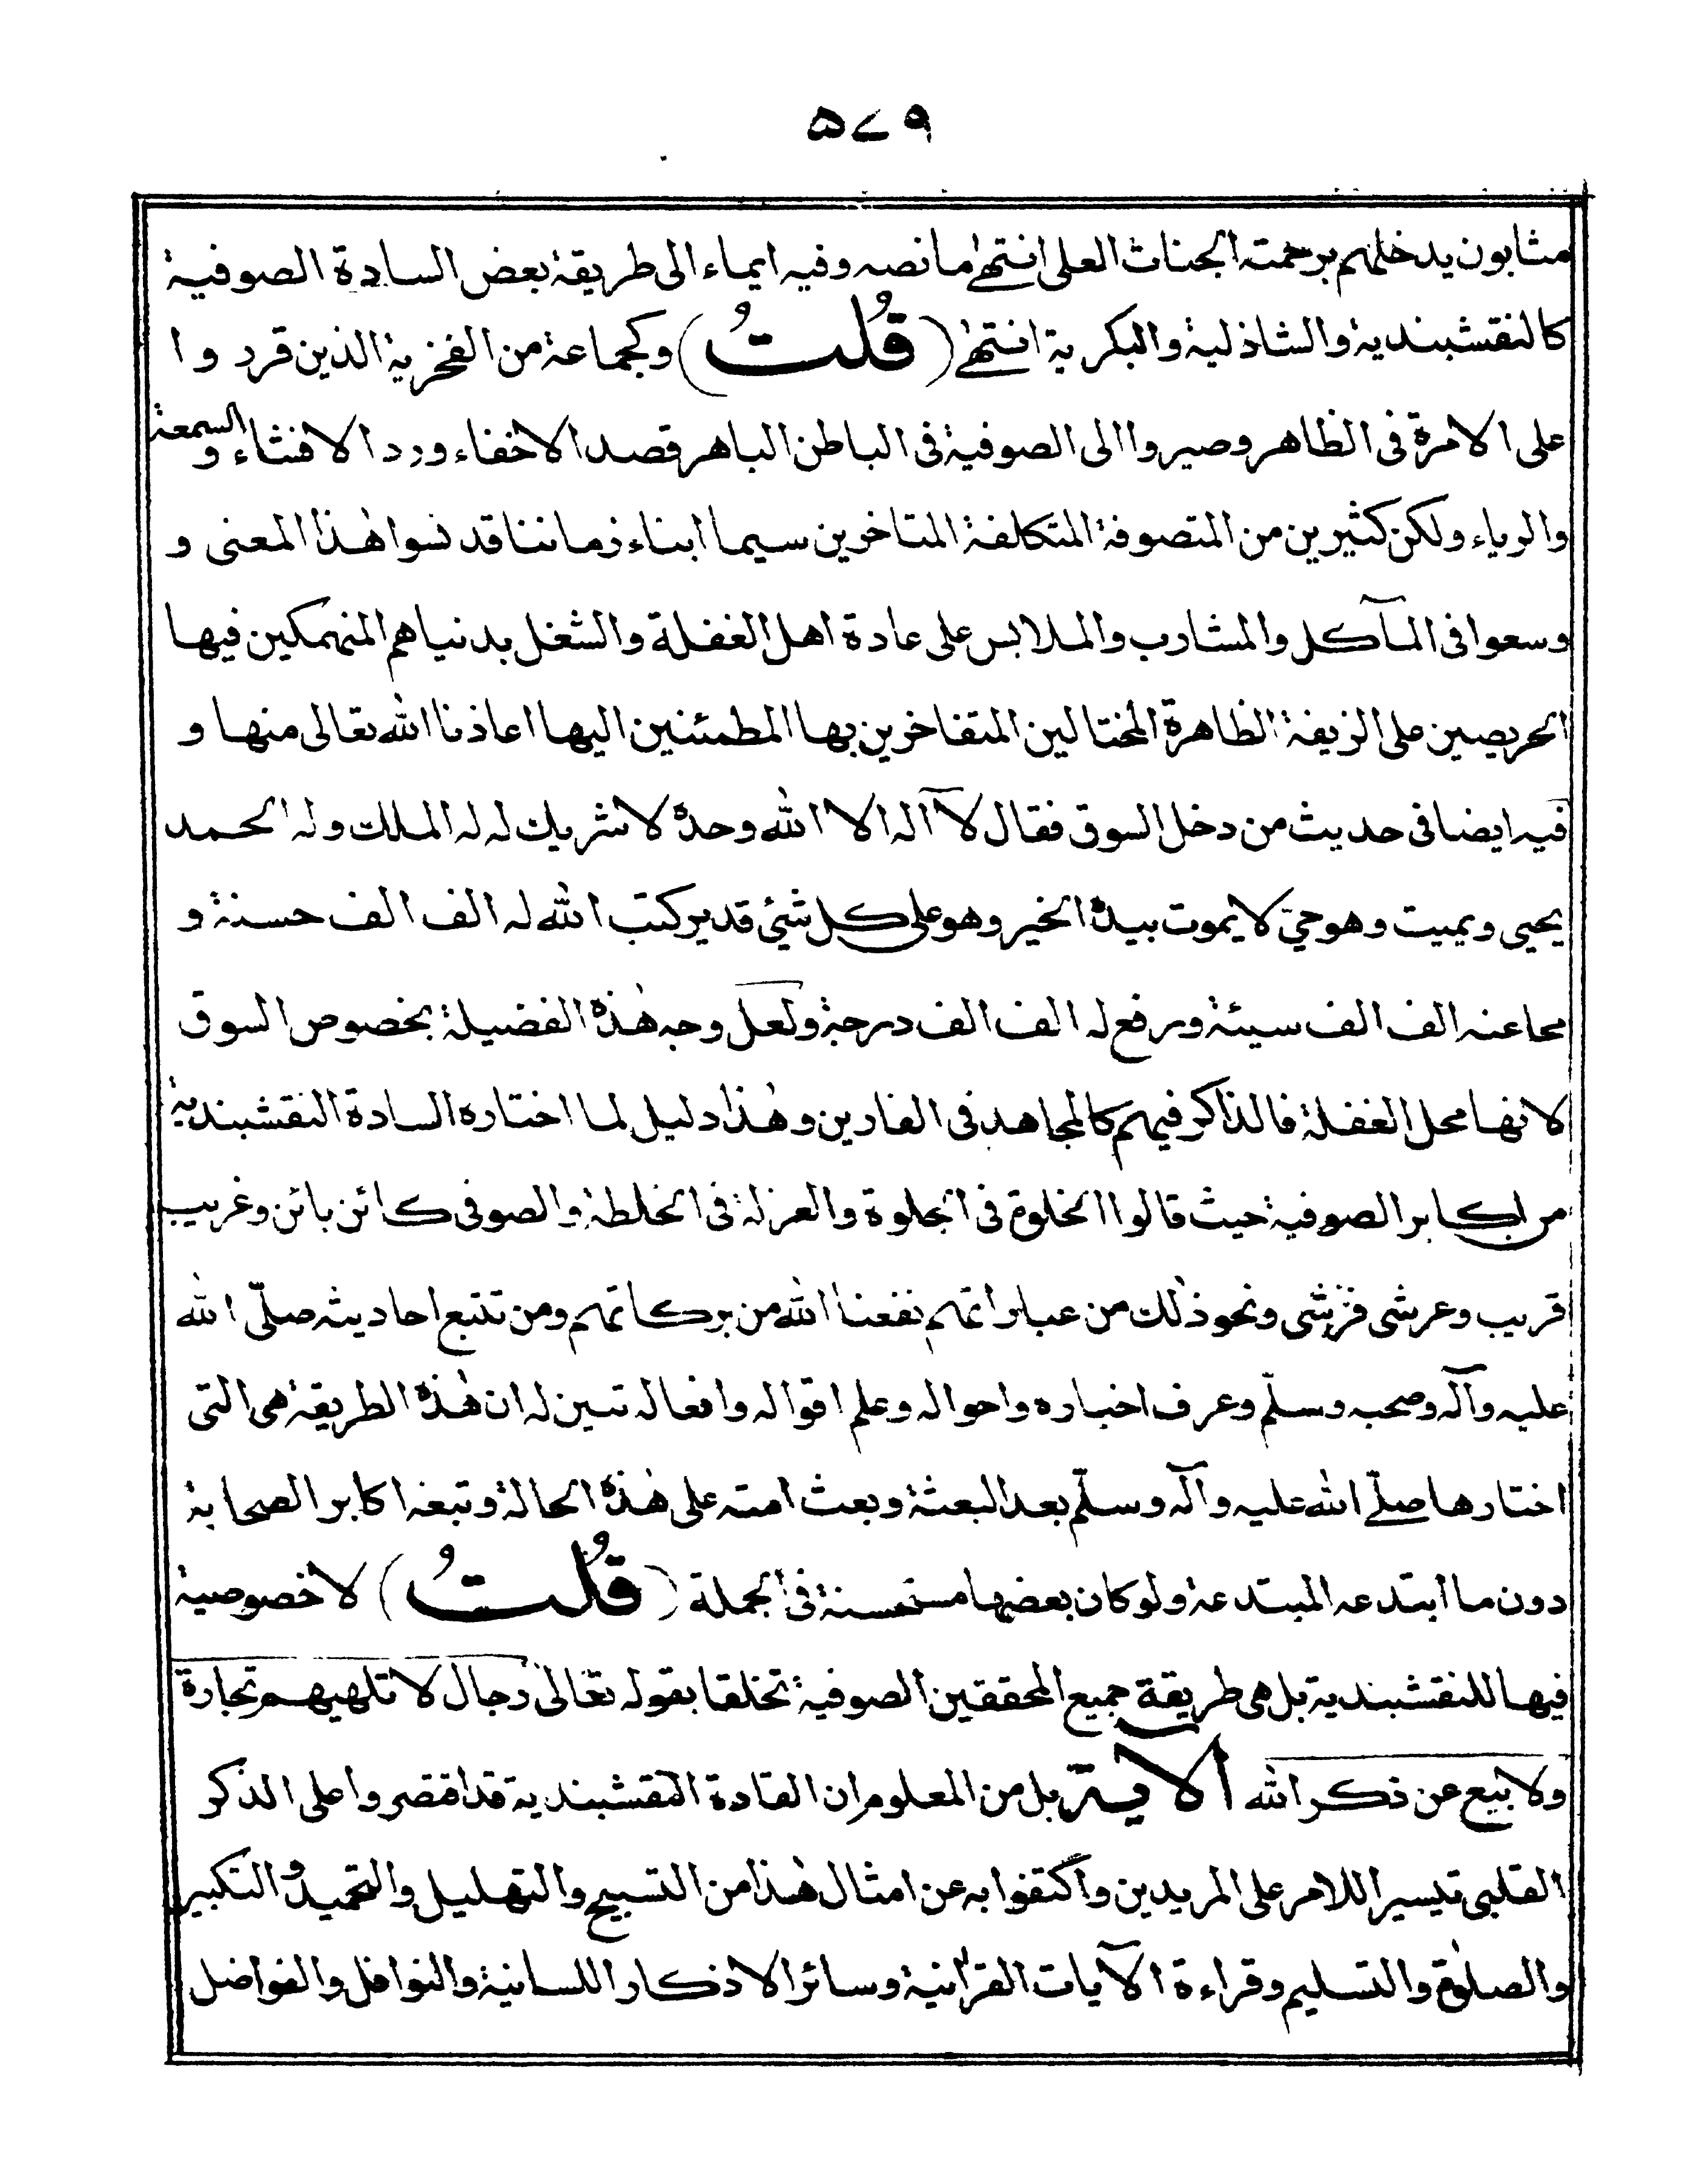 ۵۷۹
مثابون يدخلهم برحمته الجنات العلى انتهىٰ ما نصه وفيه ايماء الى طريقة بعض السادة الصوفية
كالنقشبندية والشاذلية والبكرية انتهىٰ (قُلتُ) وكجماعة من الفخرية الذين قرروا
على الامرة فى الظاهر وصيروا الى الصوفية فى الباطن الباهر قصد الاخفاء ورد الافشاء و السمعة
والرياء ولكن كثيرين من المتصوفة المتكلفة المتاخرين سيما ابناء زماننا قد نسوا هٰذا المعنى و
وسعوا فى المآكل والمشارب والملابس على عادة اهل الغفلة والشغل بدنياهم المنهمكين فيها
الحريصين على الزيفة الظاهرة المختالين المتفاخرين بها المطمئنين اليها اعاذنا الله تعالى منها و
فيه ايضا فى حديث من دخل السوق فقال لآ اله الا الله وحدهٗ لا شريك له له الملك وله الحمد
يحيى ويميت وهو حيّ لا يموت بيدهٖ الخير وهو على كل شيئ قدير كتب الله له الف الف حسنة و
محا عنه الف الف سيئة ورفع له الف الف درجة ولعل وجه هٰذهٖ الفضيلة بخصوص السوق
لانها محل الغفلة فالذاكر فيهم كالمجاهد فى الفارين وهٰذا دليل لما اختاره السادة النقشبندية
من اكابر الصوفية حيث قالوا الخلوة فى الجلوة والعزلة فى الخلطة والصوفى كائن بائن وغريب
قريب وعرشى فرشى ونحو ذٰلك من عباراتهم نفعنا الله من بركاتهم ومن تتبع احاديثه صلّى الله
عليه وآله وصحبه وسلّم وعرف اخباره واحواله وعلم اقواله وافعاله تبين له ان هٰذهٖ الطريقة هى التى
اختارها صلّے الله عليه وآله وسلّم بعد البعثة وبعث امته على هٰذهٖ الحالة وتبعه اكابر الصحابة
دون ما ابتدعه المبتدعة ولو كان بعضها مستحسنة فى الجملة (قُلتُ) لا خصوصية
فيها للنقشبندية بل هى طريقة جميع المحققين الصوفية تخلقا بقوله تعالىٰ رجال لا تلهيهم تجارة
ولا بيع عن ذكر الله الاية بل من المعلوم ان القادة النقشبندية قد اقتصروا على الذكر
القلبى تيسيرا للامر على المريدين واكتفوا به عن امثال هٰذا من التسبيح والتهليل والتحميد والتكبير
والصلوٰة والتسليم وقراءة الآيات القراٰنية وسائر الاذكار اللسانية والنوافل والفواضل